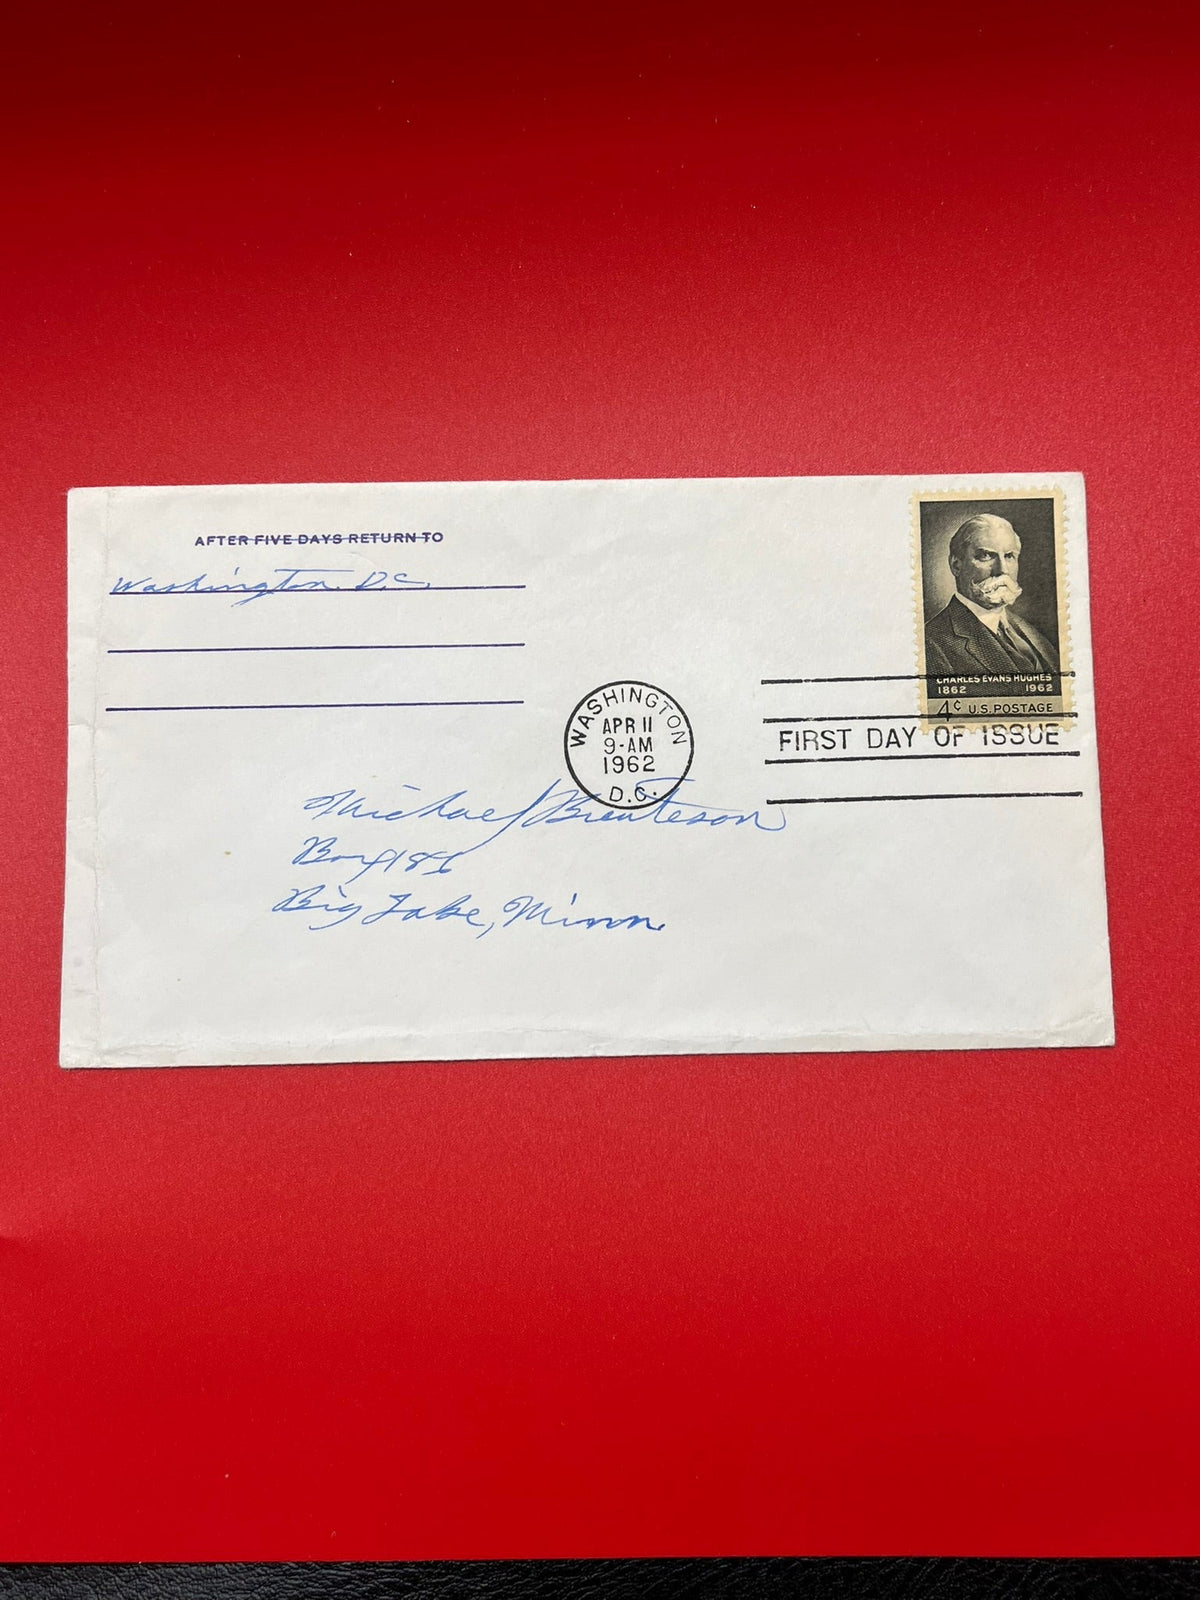 AFTER FIVE DAYS RETURN TO
Washington D.C.
CHARLES EVANS HUGHES
1862 1962
4¢ U.S. POSTAGE
WASHINGTON
APR 11
9-AM
1962
D.C.
FIRST DAY OF ISSUE
Michael
Box
Big Lake, Minn.